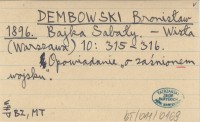 DEMBOWSKI Bronisław
1896. Bajka Sabały. - Wisła
(Warszawa) 10: 315-316.
Opowiadanie "o zaśnionem
wojsku".
BZ, MT
BT/OM/0169